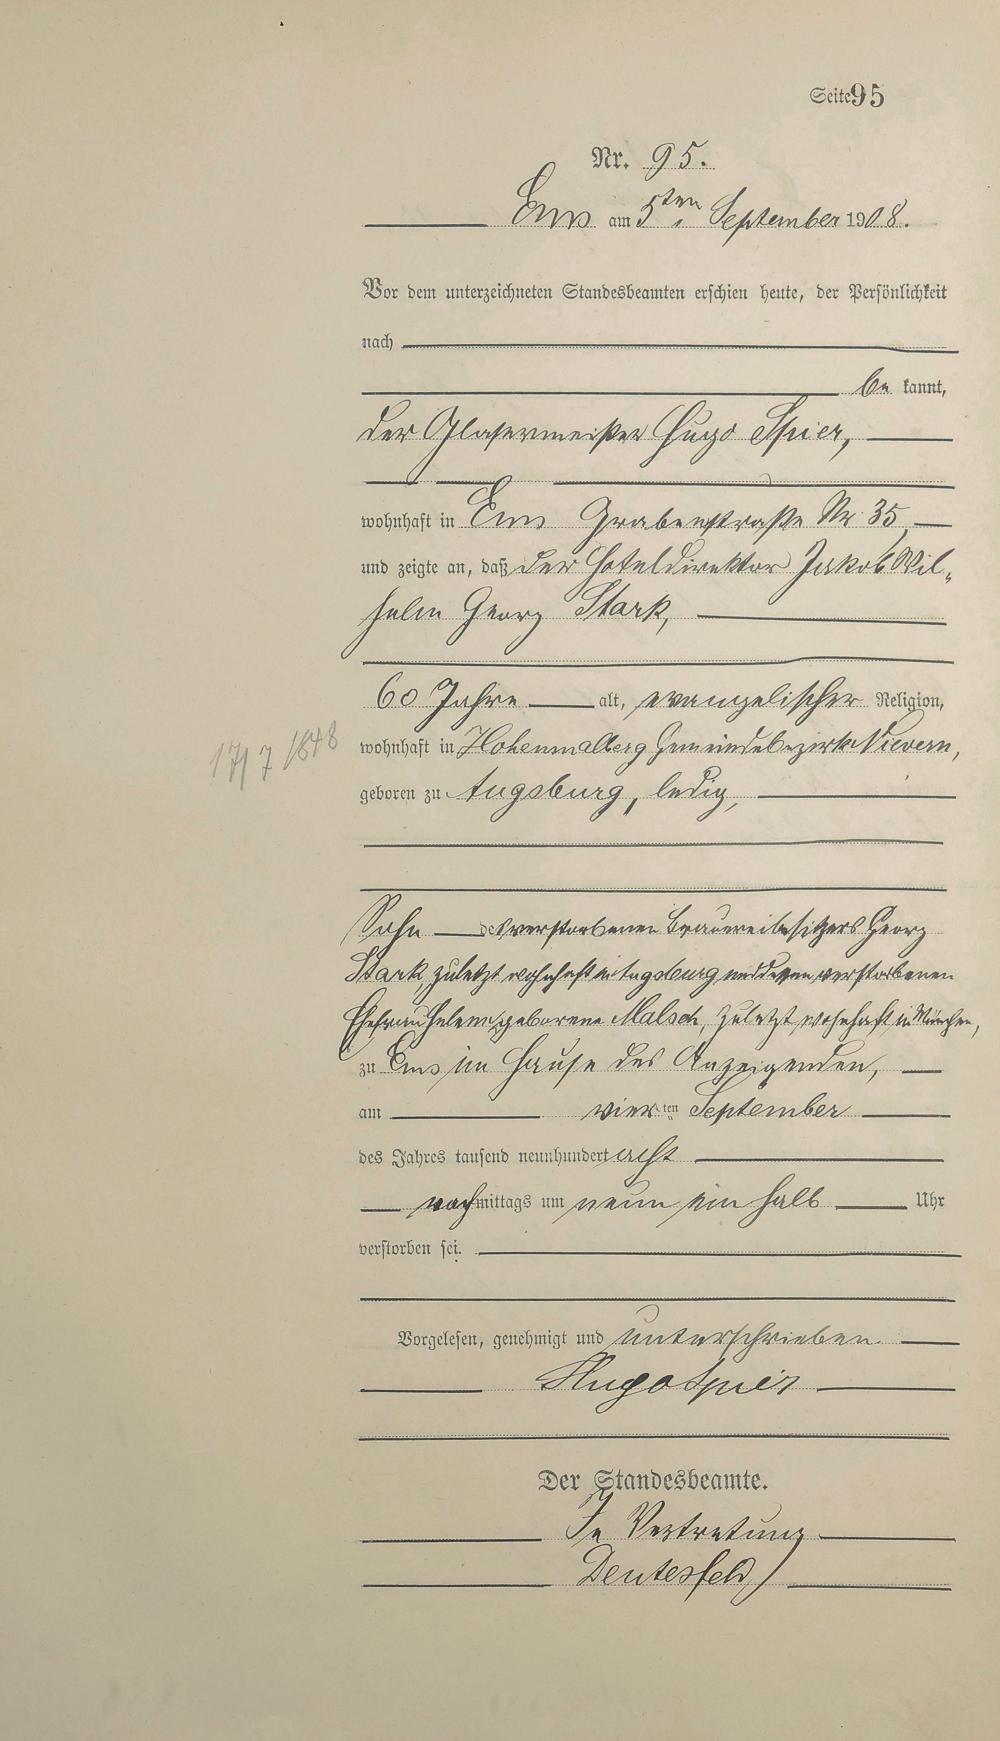 Seite 95
Nr. 95.
Ems am 5ten September 1908.
Vor dem unterzeichneten Standesbeamten erschien heute, der Persönlichkeit
nach
be kannt,
der Glasermeister Hugo Spier,
wohnhaft in Ems Grabenstraße Nr 35,
und zeigte an, daß der Hoteldirektor Jakob Wil-
helm Georg Stark,
60 Jahre alt, evangelischer Religion,
17/7 1848
wohnhaft in Hohenmalberg Gemeindebezirks Nievern,
geboren zu Augsburg, ledig,
Sohn des verstorbenen Brauereibesitzers Georg
Stark, zuletzt wohnhaft in Augsburg und dessen verstorbenen
Ehefrau Helene geborene Malsch, zuletzt wohnhaft in München,
zu Ems im Hause des Anzeigenden,
am vierten September
des Jahres tausend neunhundert acht
nachmittags um neun ein halb Uhr
verstorben sei.
Vorgelesen, genehmigt und unterschrieben.
Hugo Spier
Der Standesbeamte.
In Vertretung